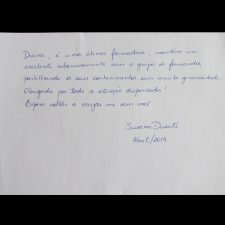 Diana, é uma ótima formadora, mantém um
excelente relacionamento com o grupo de formandos,
partilhando os seus conhecimentos com muita generosidade.
Obrigada por toda a atenção dispensada!
Espero voltar a cruzar-me com você.
Susana Duarte
Abril/2014